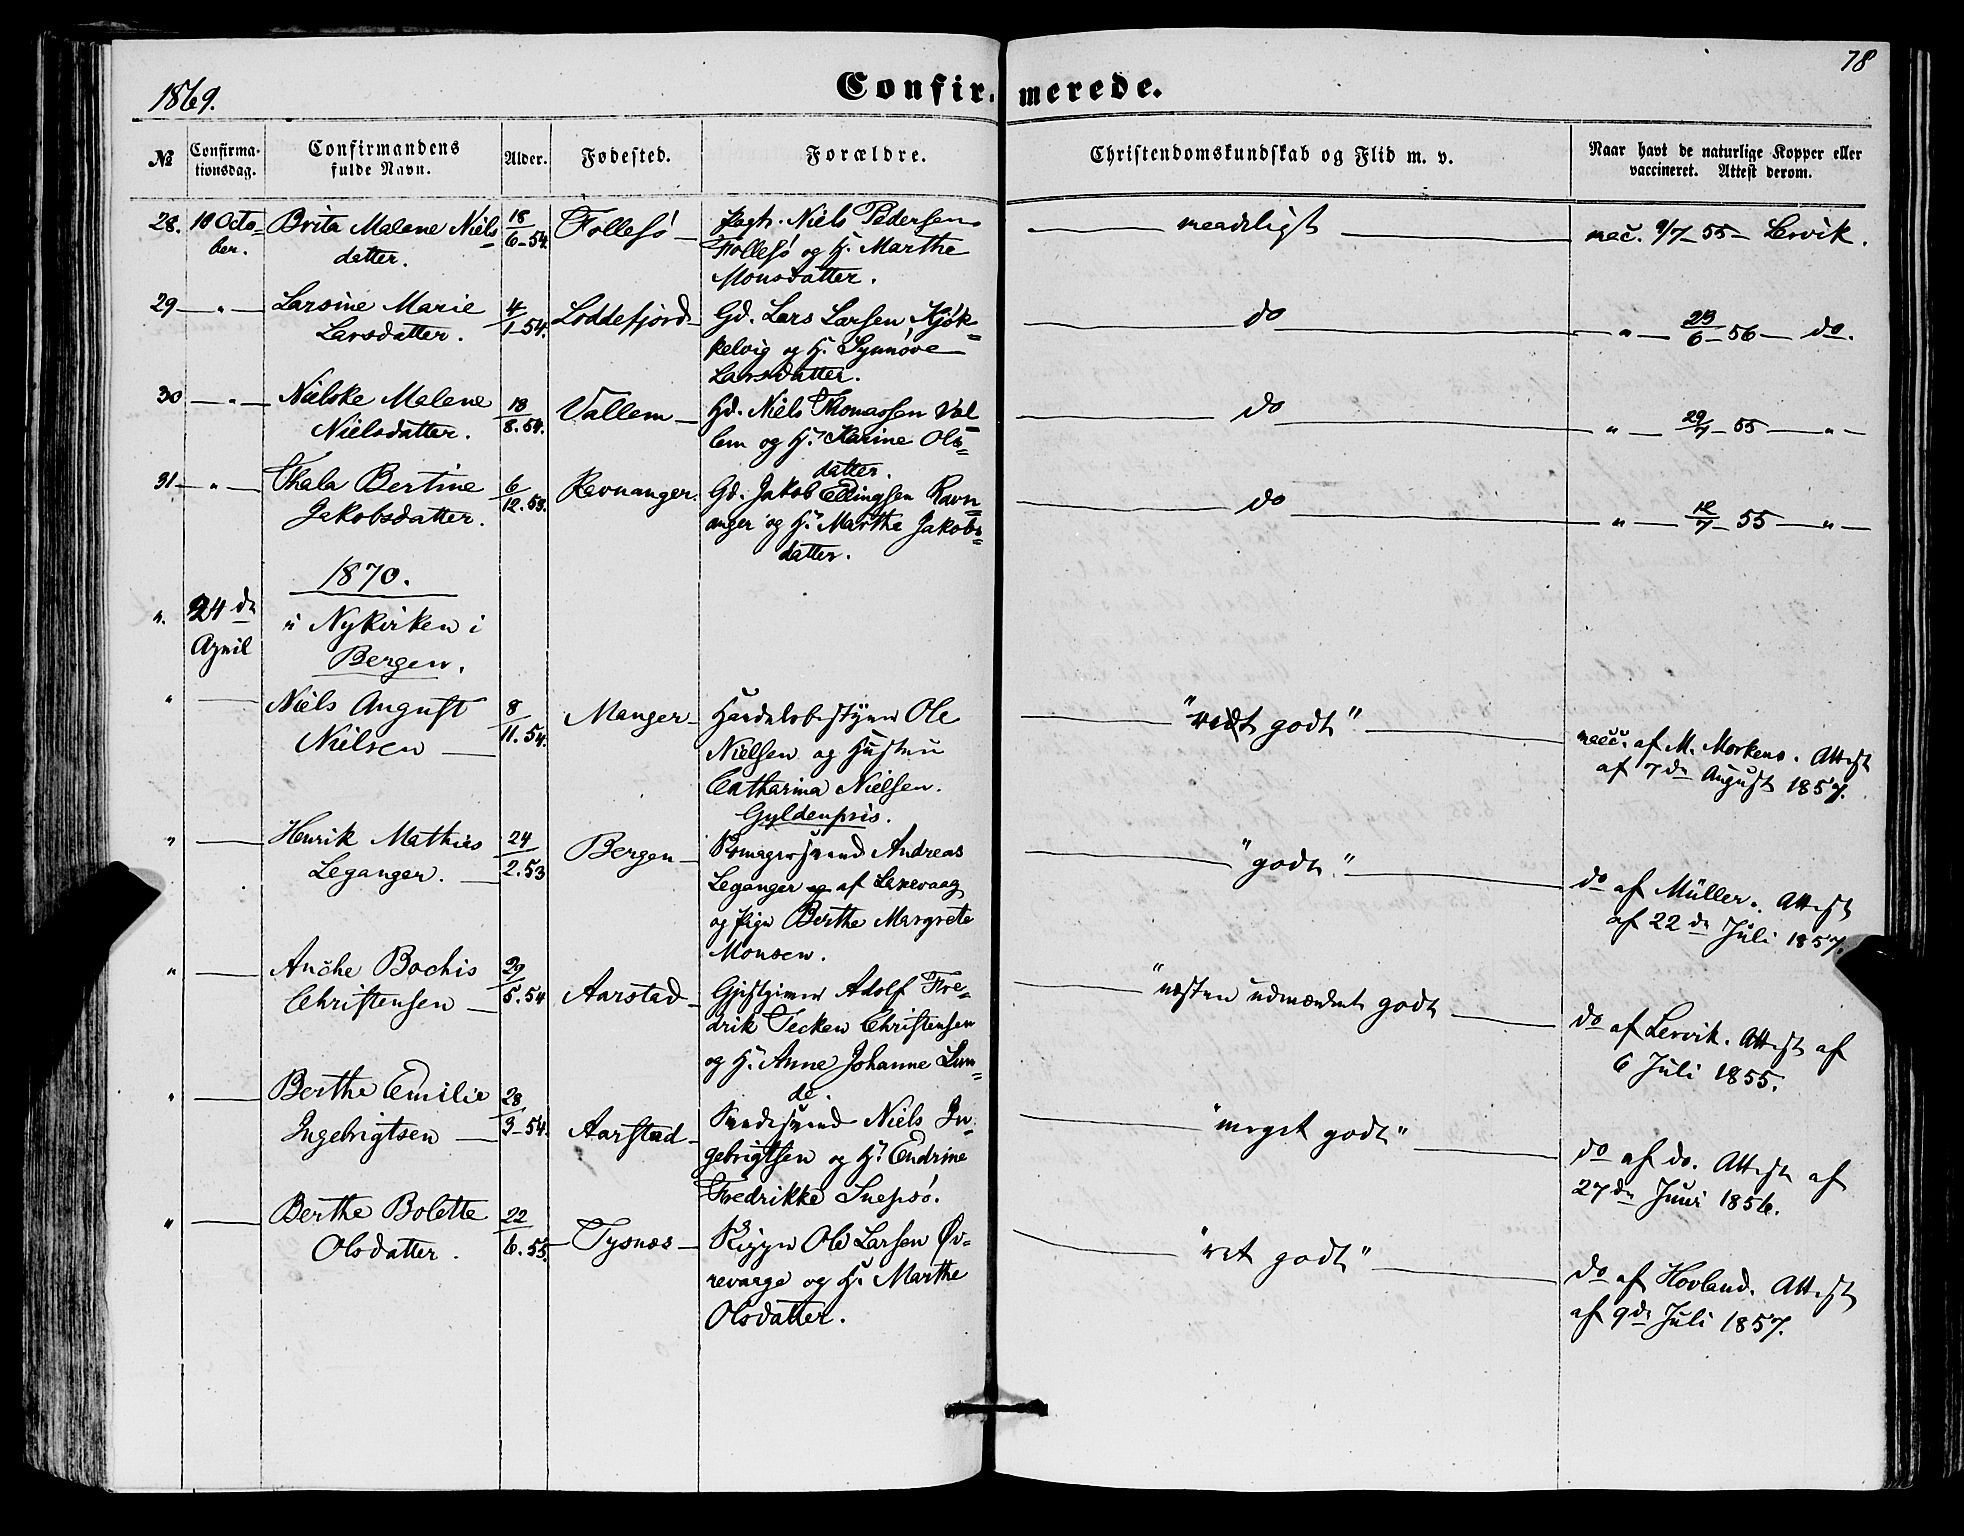 78
1869.
Confirmerede.
№ Confirmationsdag. Confirmandens fulde Navn. Alder. Fødested. Forældre. Christendomskundskab og Flid m. v. Naar havt de naturlige Kopper eller vaccineret. Attest derom.
28. 10 Octo- Brita Malene Niels- 18/6-54 Follesö Niels Pedersen meadeligt vac. 9/7-55- Lervik.
ber. datter. Follesö og H. Marthe
Monsdatter.
29 " Larsine Marie 4/1-54. Loddefjord Gd. Lars Larsen, Kjøk- do " 23/6-56- do.
Larsdatter. kelvig og H. Synnöve
Larsdatter.
30 " Nielske Malene 18/8.54. Vallem Hd. Niels Thomassen Val- do " 29/7-55 "
Nielsdatter. lem og H. Karine Ols-
datter.
31 " Thala Bertine 6/12.53. Ravnanger. Gd. Jakob Ellingsen Ravn- do " 12/7-55 "
Jakobsdatter. anger og H. Marthe Jakobs-
datter.
1870.
". 24de i Nykirken i
April Bergen.
" Niels August 8/11.54. Manger Handelsbestyrer Ole "redt godt" vacc. af M. Morkens. Attest
Nielsen Nielsen og Hustru af 7de August 1857.
Catharina Nielsen.
Gyldenpris.
" Henrik Mathias 24/2.53 Bergen Andreas "godt." do af Müller. Attest
Leganger. Leganger af Lexevaag af 22de Juli 1857.
og Pige Berthe Margrete
Monsen.
" Anche Bochis 29/5.54 Aarstad Gjestgiver Adolf Fre- "næsten udmærket godt do af Lervik. Attest af
Christensen drik Tecken Christensen 6 Juli 1855.
og H. Anne Johanne Lun-
de.
" Berthe Emilie 28/3-54. Aarstad Niels In- "meget godt" do af do. Attest af
Ingebrigtsen gebrigtsen og H. Endrine 27de Juni 1856.
Fredrikke Snepsö.
" Berthe Bolette 22/6.55 Tysnæs Ole Larsen Øv- "ret godt" do af Hovland. Attest
Olsdatter. revaage og H. Marthe af 9de Juli 1857.
Olsdatter.